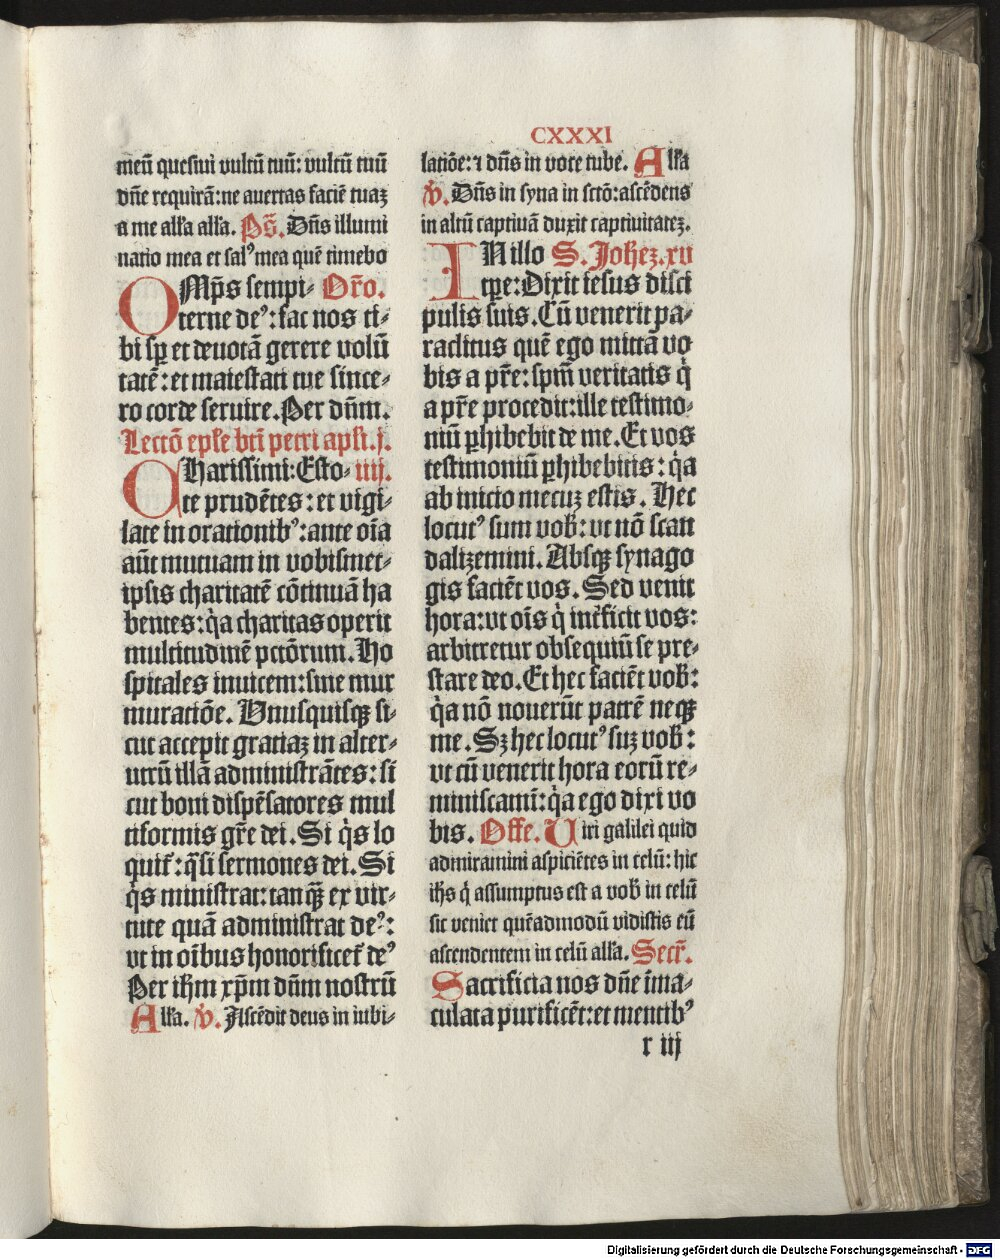 CXXXI
meū quesiui vultū tuū: vultū tuū
dn̄e requirā: ne auertas faciē tuaꝫ
a me all'a all'a. Ps̄. Dn̄s illumi
natio mea et salꝰ mea quē timebo
OMp̄s sempi⸗ Or̄o.
terne deꝰ: fac nos ti⸗
bi sp̄ et deuotā gerere volū
tatē: et maiestati tue since⸗
ro corde seruire. Per dn̄m.
Lectō ep̄le bt̄i petri apl̄i. j.
CHarissimi: Esto⸗ iiij.
te prudētes: et vigi⸗
late in orationibꝰ: ante oīa
aūt mutuam in vobismet⸗
ipsis charitatē cōtinuā ha
bentes: q̇a charitas operit
multitudinē pctōrum. Ho
spitales inuicem: sine mur
muratiōe. Vnusquisqꝫ si⸗
cut accepit gratiaꝫ in alter⸗
utrū illā administrātes: si
cut boni dispēsatores mul
tiformis gr̄e dei. Si q̇s lo
quit̄: q̄si sermones dei. Si
q̇s ministrat: tanqꝫ̄ ex vir⸗
tute quā administrat deꝰ:
vt in oībus honorificet̄ deꝰ
Per ih̄m xp̄m dn̄m nostrū
All'a. ℣. Ascēdit deus in iubi⸗
latiōe: ⁊ dn̄s in voce tube. All'a
℣. Dn̄s in syna in sctō: ascēdens
in altū captiuā duxit captiuitateꝫ.
IN illo S. Joh̄eꝫ. xv
tꝑe: Dixit iesus disci
pulis suis. Cū venerit pa⸗
raclitus quē ego mittā vo
bis a pr̄e: spm̄ veritatis q̇
a pr̄e procedit: ille testimo⸗
niū ꝑhibebit de me. Et vos
testimoniū ꝑhibebitis: q̇a
ab inicio mecuꝫ estis. Hec
locutꝰ sum vob̄: vt nō scan
dalizemini. Absqꝫ synago
gis faciēt vos. Sed venit
hora: vt oīs q̇ int̄ficit vos:
arbitretur obsequiū se pre⸗
stare deo. Et hec faciēt vob̄:
q̇a nō nouerūt patrē neqꝫ
me. Sꝫ hec locutꝰ suꝫ vob̄:
vt cū venerit hora eorū re⸗
miniscamī: q̇a ego dixi vo
bis. Offe. Viri galilei quid
admiramini aspiciētes in celū: hic
ih̄s q̇ assumptus est a vob̄ in celū
sic veniet quēadmodū vidistis eū
ascendentem in celū all'a. Secr̄.
Sacrificia nos dn̄e īma⸗
culata purificēt: et mentibꝰ
r iij
Digitalisierung gefördert durch die Deutsche Forschungsgemeinschaft - DFG